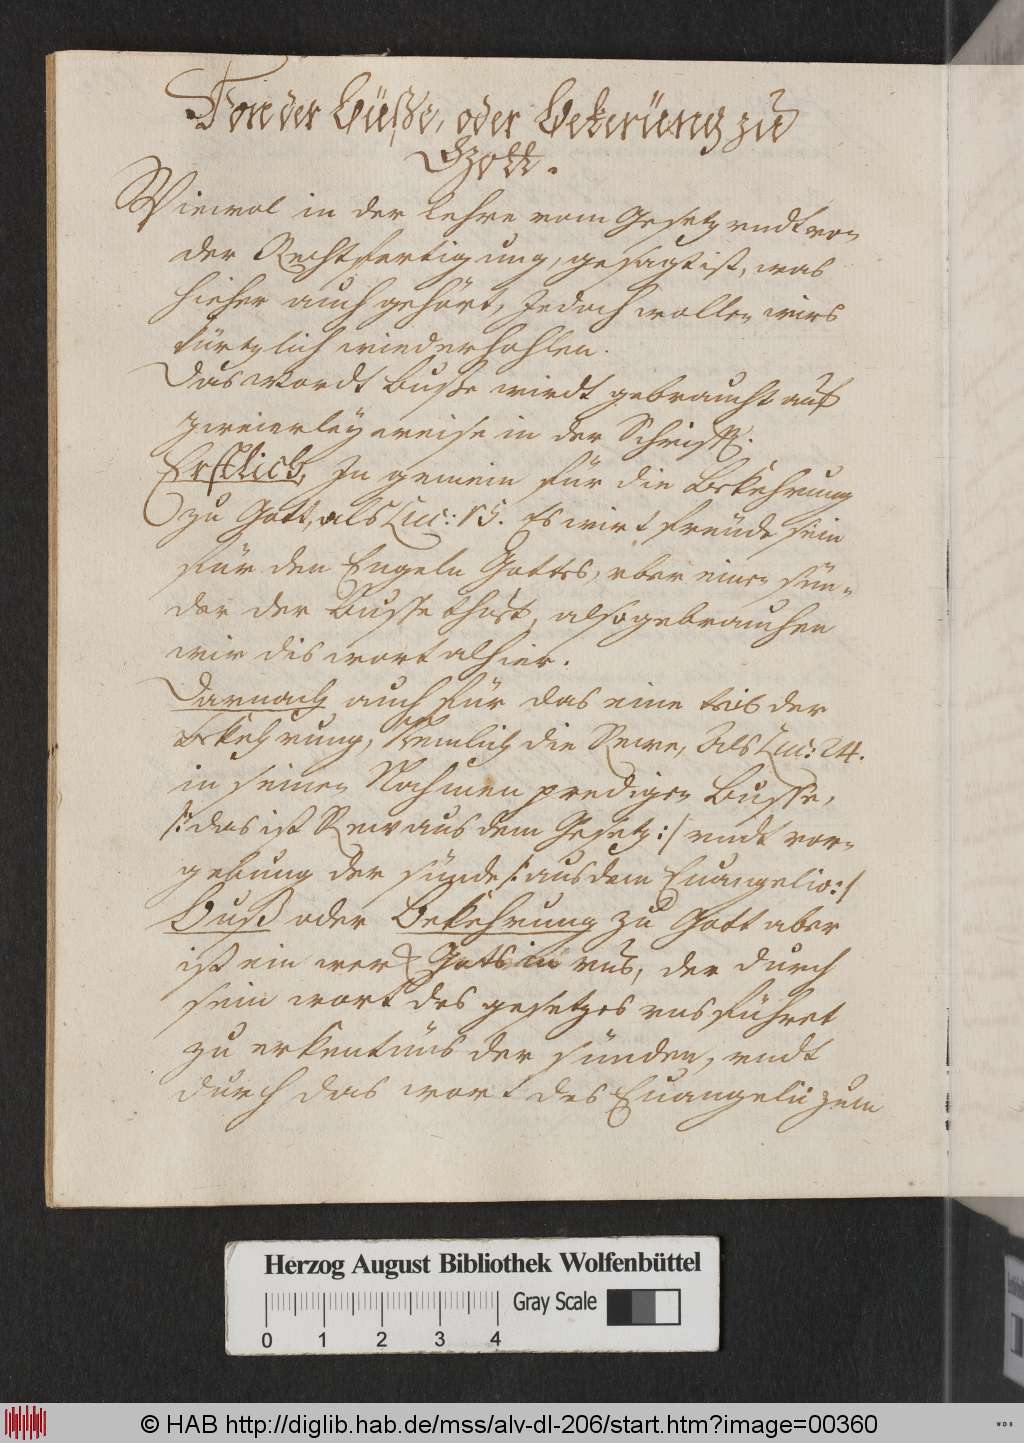 Von der Büße, oder Bekerüng zu
Gott.
Wiewol in der lehre vom Gesetz vndt von
der Rechtfertigung, gesagt ist, was
hieher auch gehört, Jedoch wollen wirs
kürtzlich wiederhohlen.
Das Wordt Busse wirdt gebraucht auf
zweierley weise in der Schrifft.
Erstlich, In gemein für die Bekehrung
zu Gott, als Luc: 15. Es wirt freude sein
für den Engeln Gottes, vber einen sün-
der der Busse thut, also gebrauchen
wir dis wort alhier.
Darnach auch für das eine teil der
Bekehrung, Nemlich die Rewe, Als Luc: 24.
in seinen Nahmen predigen Busse,
/: das ist Rew aus dem Gesetz :/ vndt ver-
gebung der sünde /: aus dem Euangelio :/
Buß oder Bekehrung zu Gott aber
ist ein werk Gots in vns, der durch
sein wort des gesetzes vns führet
zu erkentnüs der sünden, vndt
durch das wort des Euangelii zum
Herzog August Bibliothek Wolfenbüttel
Gray Scale
0 1 2 3 4
© HAB http://diglib.hab.de/mss/alv-dl-206/start.htm?image=00360